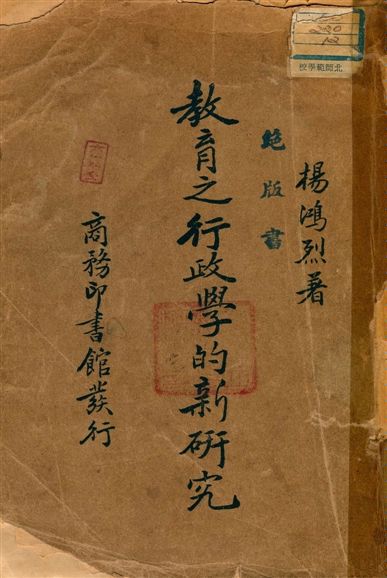 楊鴻烈著
絕版書
教育之行政學的新研究
商務印書館發行
校學範師北